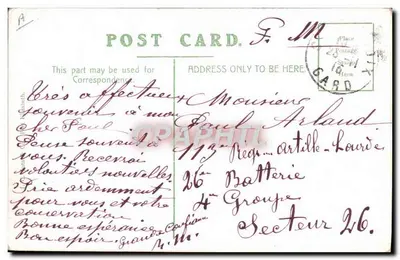 A
F. M
POST CARD.
This part may be used for
Correspondence
ADDRESS ONLY TO BE HERE
GARD
Très affectueux
souvenir à mon
cher Paul
Pense souvent à
vous. Recevrai
volontiers nouvelles
Prie ardemment
pour vous et votre
conservation
Bonne espérance
Bon espoir Grande Confiance
R. M.
Monsieur
Paul Arland
113e Regi- artille-Lourde
26e Batterie
4e Groupe
Secteur 26.